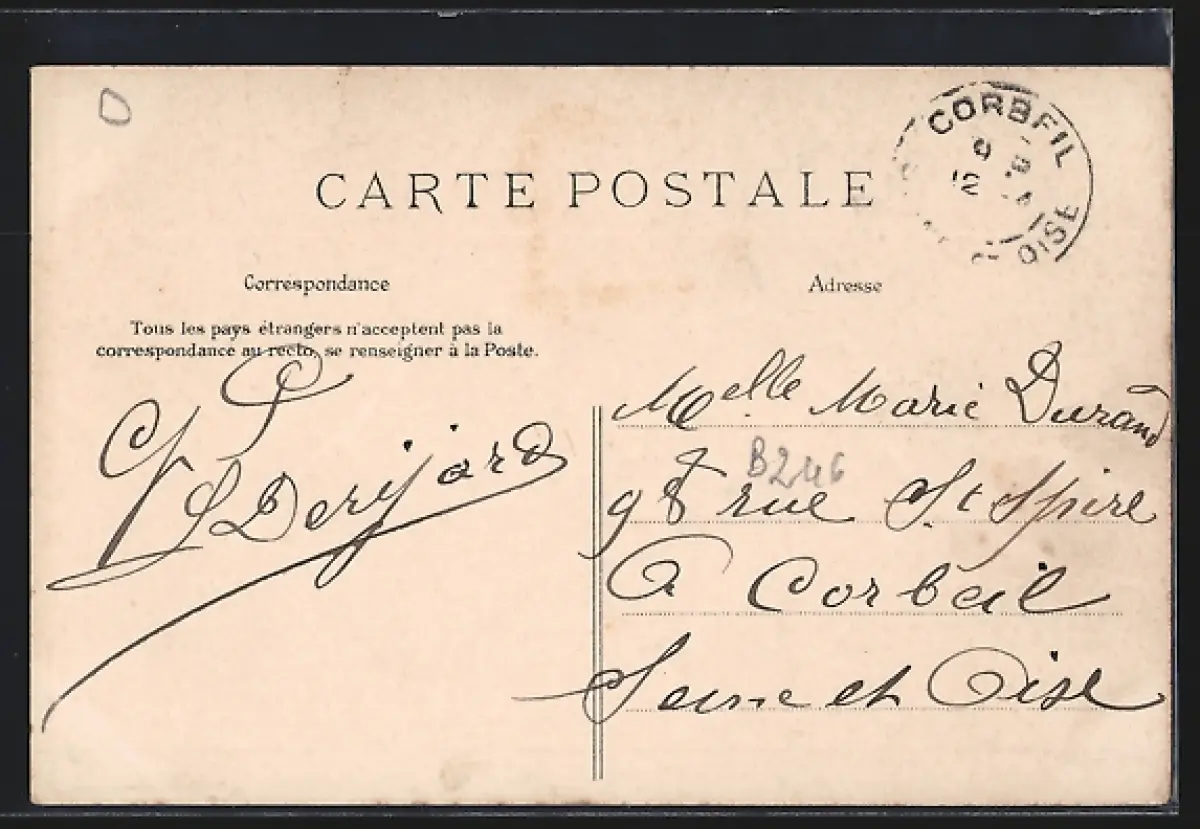 CARTE POSTALE
CORBEIL
OISE
Correspondance
Tous les pays étrangers n'acceptent pas la
correspondance au recto, se renseigner à la Poste.
Derijard
Adresse
Melle Marie Durand
98 rue St Spire
B246
A Corbeil
Seine et Oise